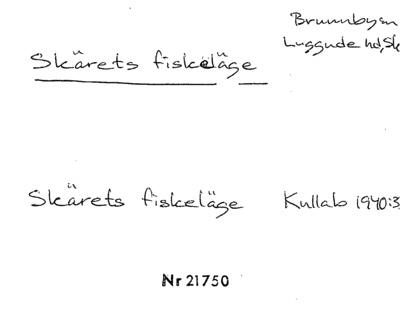 Brunnbysn
Luggude hd, Sk
Skärets fiskeläge
Skärets fiskeläge Kullab 1940:3
Nr 21750